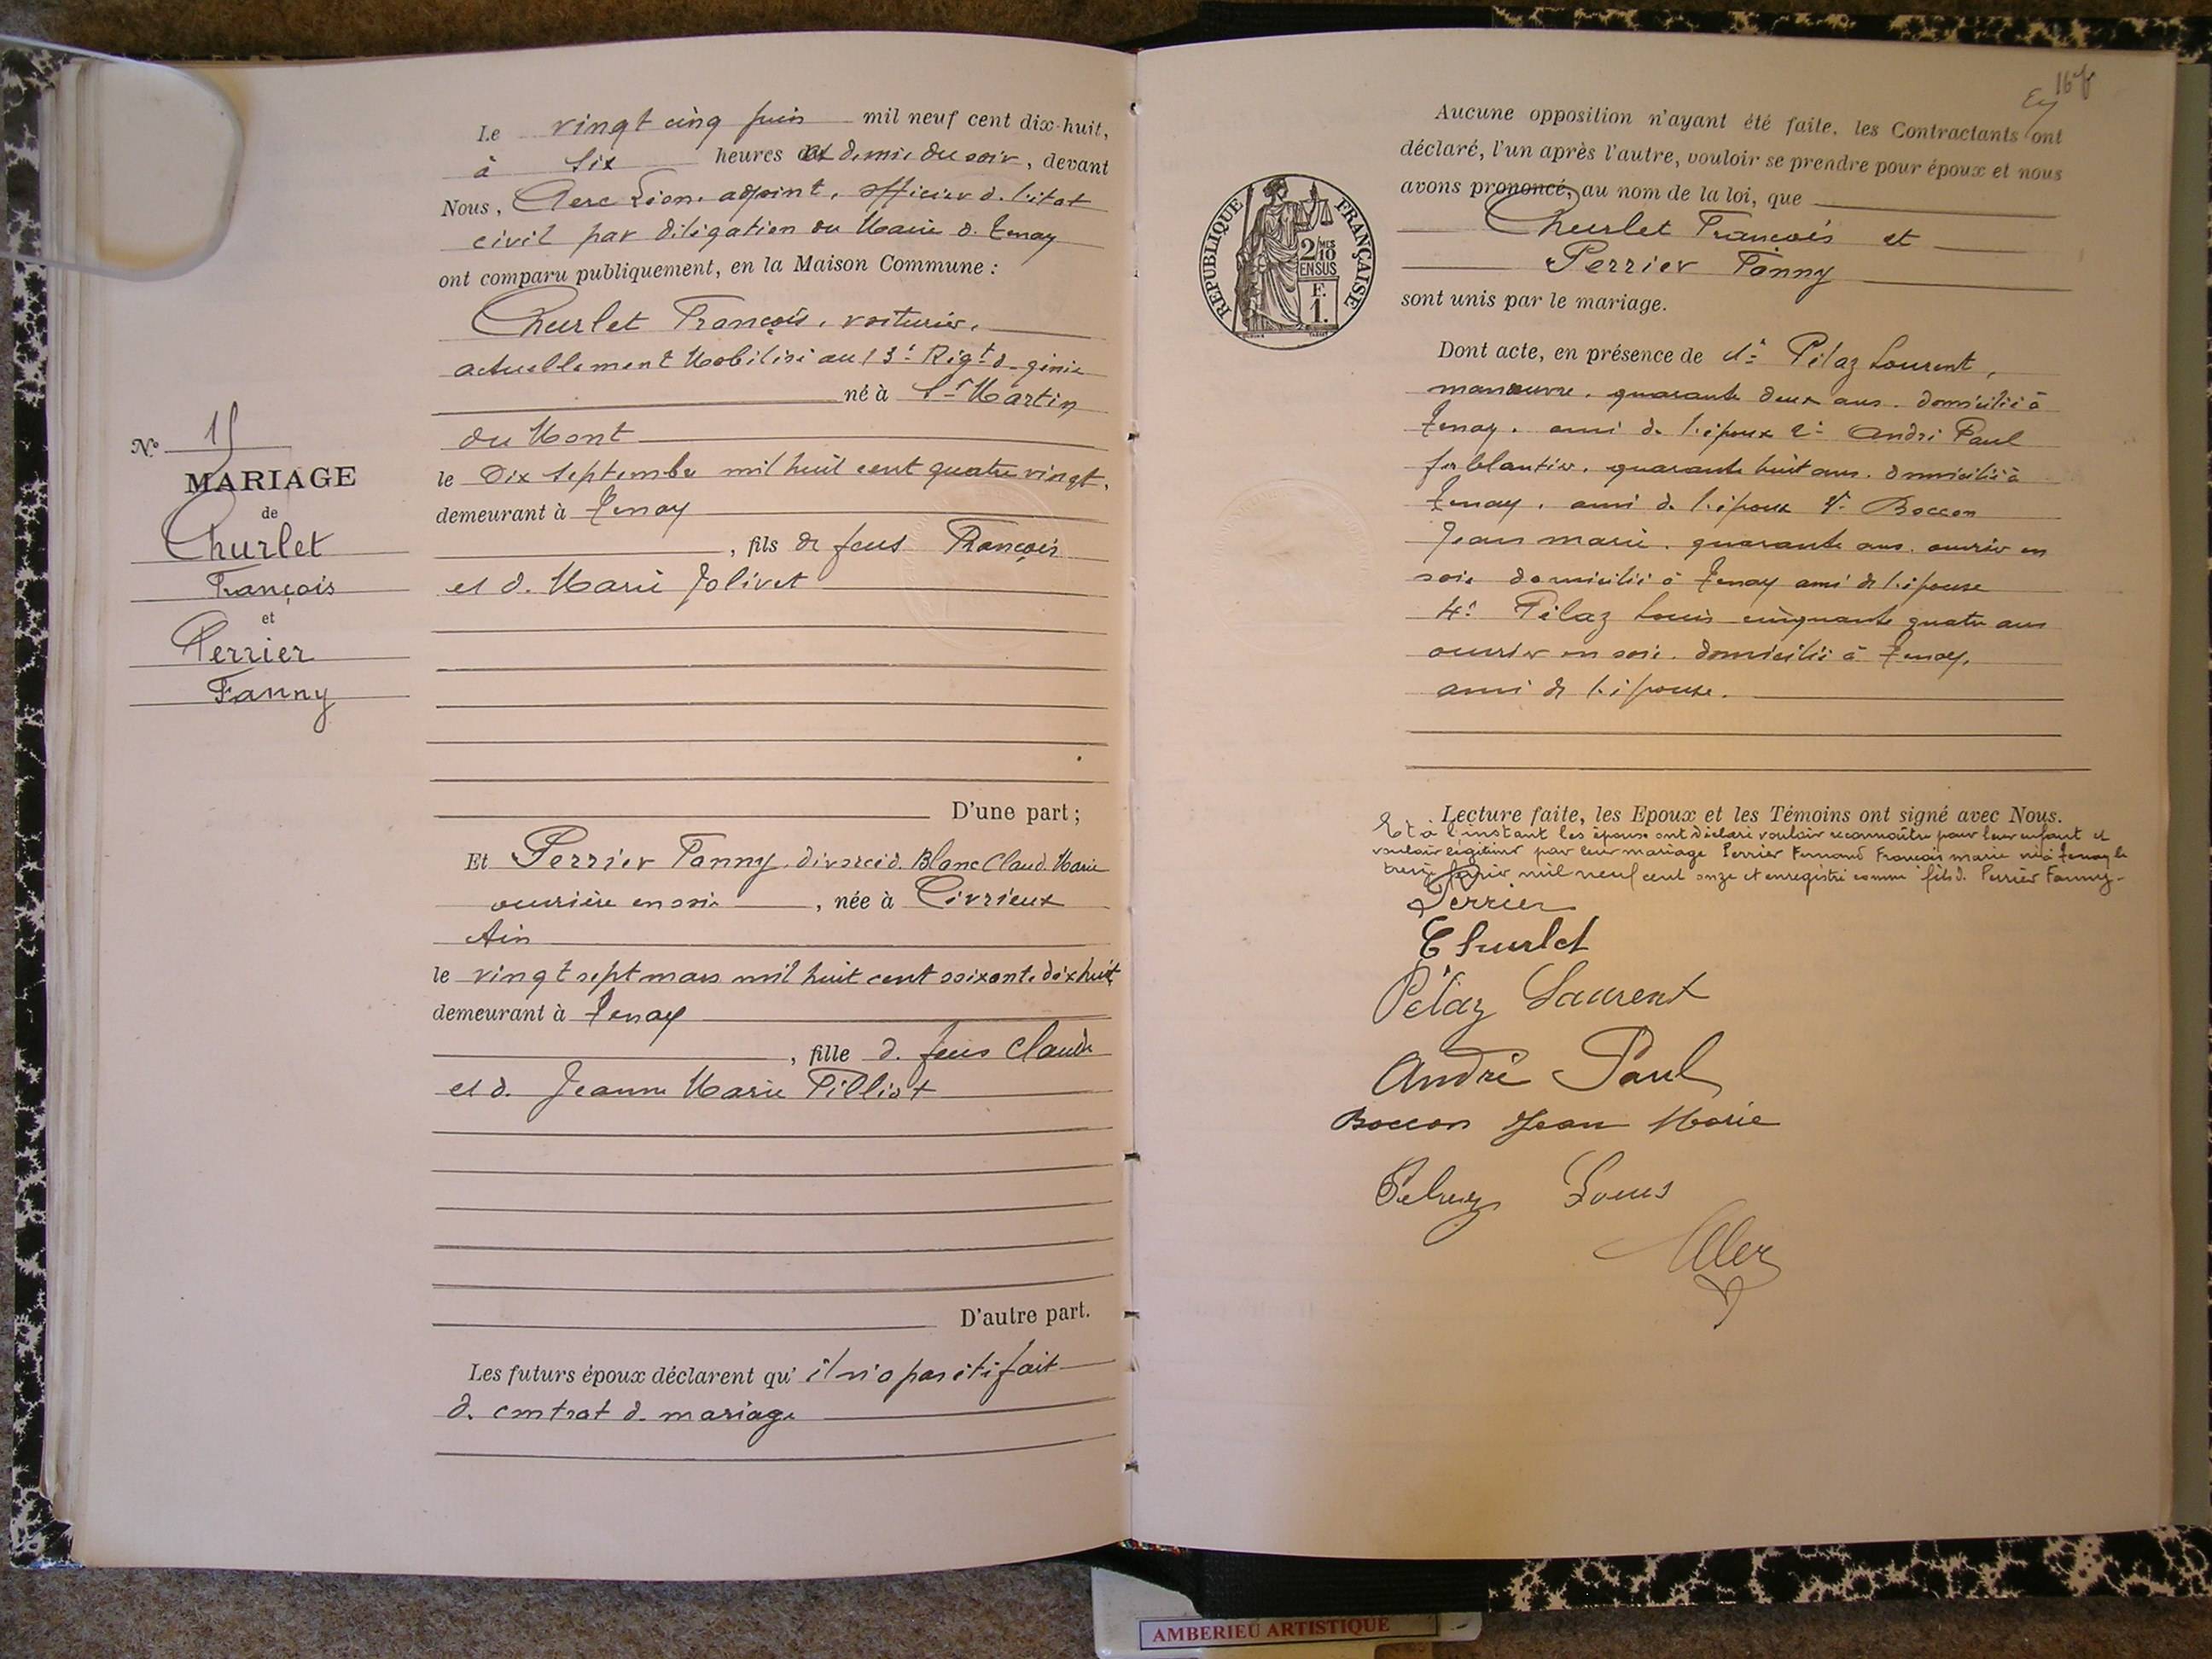 Nº 15
MARIAGE
de
Churlet
François
et
Perrier
Fanny
Le vingt cinq juin mil neuf cent dix-huit,
à Six heures et demie du soir, devant
Nous, Léon, adjoint, officier de l'état
civil par délégation du Maire de Tenay
ont comparu publiquement, en la Maison Commune :
Churlet François, voiturier,
actuellement Mobilisé au 13e Rigt de génie
né à St Martin
du Mont
le Dix Septembre mil huit cent quatre vingt,
demeurant à Tenay
, fils de feus François
et de Marie Jolivet
D'une part ;
Et Perrier Fanny, divorcée de Blanc Claude Marie
ouvrière en soie, née à Civrieux
Ain
le vingt sept mars mil huit cent soixante dix huit
demeurant à Tenay
, fille de feus Claude
et de Jeanne Marie Pilliot
D'autre part.
Les futurs époux déclarent qu'il n'a pas été fait
de contrat de mariage
16
Aucune opposition n'ayant été faite, les Contractants ont
déclaré, l'un après l'autre, vouloir se prendre pour époux et nous
avons prononcé, au nom de la loi, que
Churlet François et
Perrier Fanny
sont unis par le mariage.
RÉPUBLIQUE FRANÇAISE
2/10 MES
EN SUS
F.
1.
Dont acte, en présence de 1º Pélaz Laurent,
manœuvre, quarante deux ans, domicilié à
Tenay, ami de l'époux 2º André Paul
ferblantier, quarante huit ans, domicilié à
Tenay, ami de l'époux 3º Boccon
Jean marie, quarante ans, ouvrier en
soie domicilié à Tenay ami de l'épouse
4º Pélaz Louis cinquante quatre ans
ouvrier en soie, domicilié à Tenay,
ami de l'épouse.
Lecture faite, les Epoux et les Témoins ont signé avec Nous.
Et à l'instant les époux ont déclaré vouloir reconnaître pour leur enfant et
vouloir légitimer par leur mariage Perrier Fernand François marie né à Tenay le
treize mil neuf cent onze et enregistré comme fils de Perrier Fanny-
Perrier
Churlet
Pélaz Laurent
André Paul
Boccon Jean Marie
Pelaz Louis
AMBERIEU ARTISTIQUE